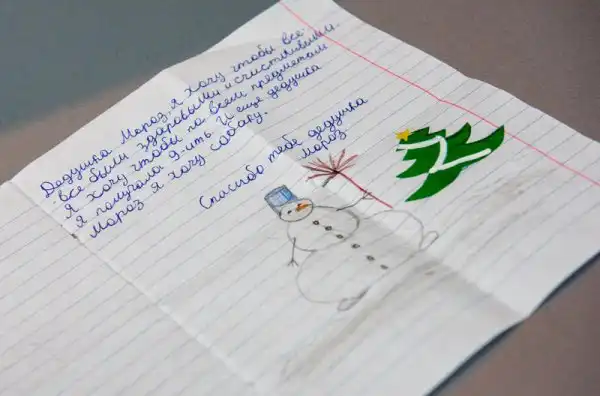 Дедушка Мороз, я хочу чтобы все:
все были здоровыми и счистливыми.
Я хочу чтобы по всем предметам
я получала 9-ить. И ещё дедушка
Мороз я хочу собаку.
Спасибо тебе дедушка
мороз